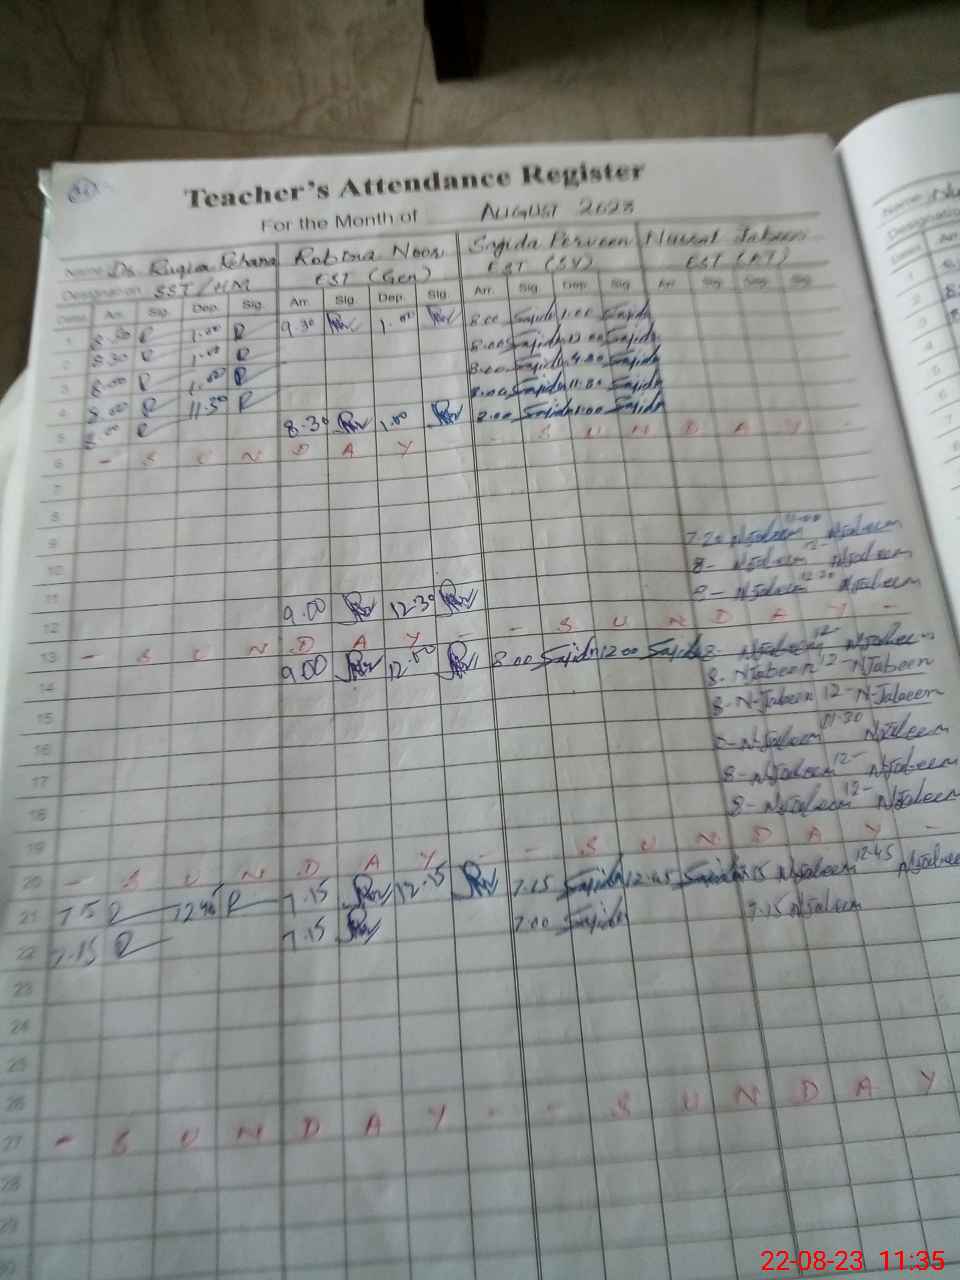 Teacher's Attendance Register
For the Month of AUGUST 2023
Name Dr. Ruqia Rehana Robina Noor Sajida Perveen Nusrat Jabeen
Designation SST/HM EST (Gen) EST (SV) EST (AT)
Date Arr. Sig. Dep. Sig. Arr. Sig. Dep. Sig. Arr. Sig. Dep. Sig. Arr. Sig. Dep. Sig.
1 8.30 R 1.00 R 9.30 1.00 8.00 Sajida 1.00 Sajida
2 8.30 R 1.00 R 8.00 Sajida Sajida
3 8.00 R 1.00 R 8.00 Sajida Sajida
4 8.00 R 11.30 R 8.00 Sajida 11.30 Sajida
5 8.00 R 8.30 1.00 8.00 Sajida 1.00 Sajida
6 - S U N D A Y - - S U N D A Y -
7
8
9
10 7.20 N Jabeen 11-00 N Jabeen
11 8- N Jabeen 12- N Jabeen
12 9.00 12.30 8- N Jabeen 12-30 N Jabeen
13 - S U N D A Y - - S U N D A Y -
14 9.00 12.00 8.00 Sajida 12.00 Sajida 8- N Jabeen 12- N Jabeen
15 8- N Jabeen 12- N Jabeen
16 8- N-Jabeen 12- N-Jabeen
17 N Jabeen 11-30 N Jabeen
18 8- N Jabeen 12- N Jabeen
19 8- N Jabeen 12- N Jabeen
20 - S U N D A Y - - S U N D A Y -
21 7.15 R 12.45 R 7.15 12.15 7.15 Sajida 12.45 Sajida 7.15 N Jabeen 12-45 N Jabeen
22 7.15 R 7.15 7.00 Sajida 7.15 N Jabeen
23
24
25
26
27 - S U N D A Y - - S U N D A Y
28
29
30
22-08-23 11:35